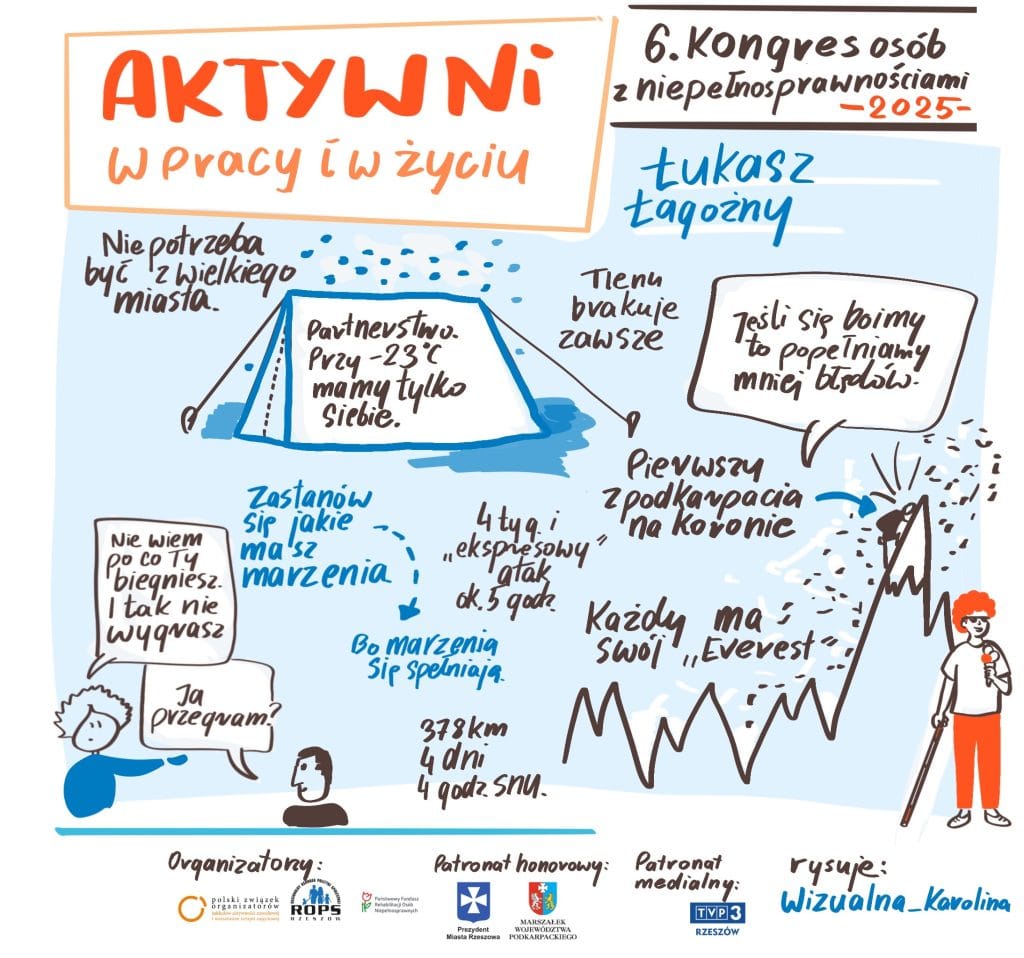 AKTYWNI
w pracy i w życiu
6. Kongres osób
z niepełnosprawnościami
-2025-
Łukasz
Łagożny
Nie potrzeba
być z wielkiego
miasta.
Partnerstwo.
Przy -23°C
mamy tylko
siebie.
Tlenu
brakuje
zawsze
Jeśli się boimy
to popełniamy
mniej błędów.
Pierwszy
z podkarpacia
na Koronie
Zastanów
się jakie
masz
marzenia
Bo marzenia
się spełniają.
4 tyg. i
„ekspresowy”
atak
ok. 5 godz.
Każdy ma
swój „Everest”
Nie wiem
po co Ty
biegniesz.
I tak nie
wygrasz
Ja
przegram?
378 km
4 dni
4 godz. snu.
Organizatorzy:
polski związek
organizatorów
zakładów aktywności zawodowej
i warsztatów terapii zajęciowej
REGIONALNY OŚRODEK POLITYKI SPOŁECZNEJ
ROPS
RZESZÓW
Państwowy Fundusz
Rehabilitacji Osób
Niepełnosprawnych
Patronat honorowy:
Prezydent
Miasta Rzeszowa
MARSZAŁEK
WOJEWÓDZTWA
PODKARPACKIEGO
Patronat
medialny:
TVP3
RZESZÓW
rysuje:
Wizualna_Karolina